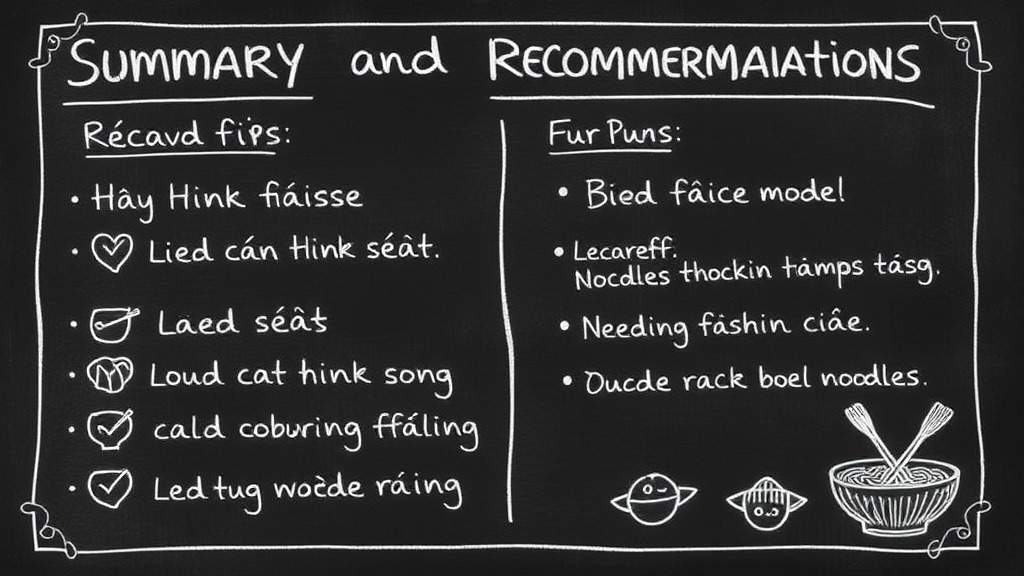 SUMMARY and RECOMMERMAIATIONS
Récavd fips:
• Hây Hink fiáisse
• Lied cán think séât.
• Laed séâts
• Loud cat hink song
• cald coburing ffáling
• Led tug wocède ráing
Fur Puns:
• Bied fâice model
• Lecareff.
Nocdles thockin tâmps tásg.
• Needing fáshin ciâe.
• Oucde rack boel noodles.